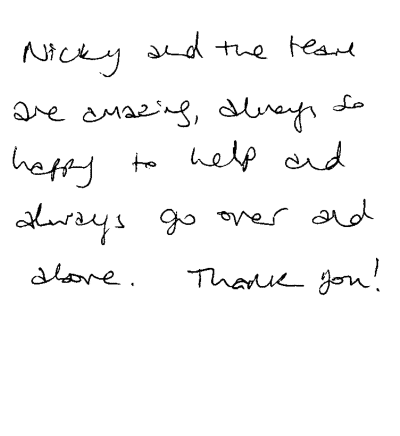 Nicky and the team
are amazing, always so
happy to help and
always go over and
above. Thank you!